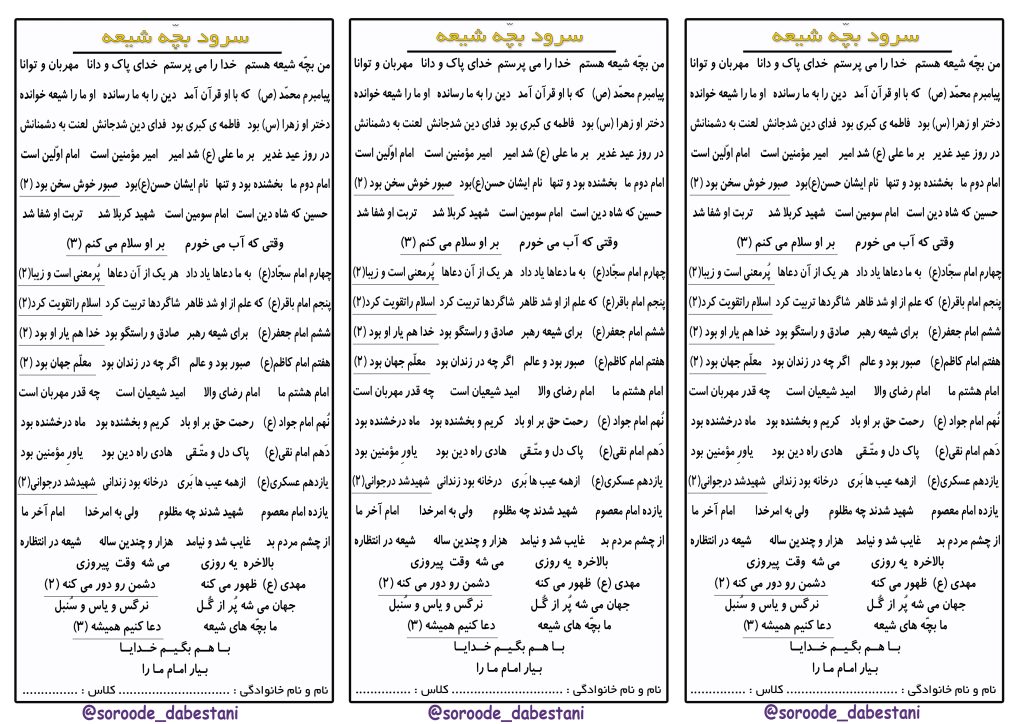 سرود بچّه شیعه
من بچّه شیعه هستم خدا را می پرستم خدای پاک و دانا مهربان و توانا
پیامبرم محمّد (ص) که با او قرآن آمد دین را به ما رسانده او ما را شیعه خوانده
دختر او زهرا (س) بود فاطمه ی کبری بود فدای دین شدجانش لعنت به دشمنانش
در روز عید غدیر بر ما علی (ع) شد امیر امیر مؤمنین است امام اوّلین است
امام دوم ما بخشنده بود و تنها نام ایشان حسن(ع)بود صبور خوش سخن بود (۲)
حسین که شاه دین است امام سومین است شهید کربلا شد تربت او شفا شد
وقتی که آب می خورم بر او سلام می کنم (۳)
چهارم امام سجّاد(ع) به ما دعاها یاد داد هر یک از آن دعاها پُرمعنی است و زیبا(۲)
پنجم امام باقر(ع) که علم از او شد ظاهر شاگردها تربیت کرد اسلام راتقویت کرد(۲)
ششم امام جعفر(ع) برای شیعه رهبر صادق و راستگو بود خدا هم یار او بود (۲)
هفتم امام کاظم(ع) صبور بود و عالم اگر چه در زندان بود معلّم جهان بود (۲)
امام هشتم ما امام رضای والا امید شیعیان است چه قدر مهربان است
نُهم امام جواد (ع) رحمت حق بر او باد کریم و بخشنده بود ماه درخشنده بود
دَهم امام نقی(ع) پاک دل و متّـقی هادی راه دین بود یاورِ مؤمنین بود
یازدهم عسکری(ع) ازهمه عیب ها بَری درخانه بود زندانی شهیدشد درجوانی(۲)
یازده امام معصوم شهید شدند چه مظلوم ولی به امرخدا امام آخر ما
از چشم مردم بد غایب شد و نیامد هزار و چندین ساله شیعه در انتظاره
بالاخره یه روزی می شه وقت پیروزی
مهدی (ع) ظهور می کنه دشمن رو دور می کنه (۲)
جهان می شه پُر از گُـل نرگس و یاس و سُنبل
ما بچّه های شیعه دعا کنیم همیشه (۳)
بـا هــم بگیـم خـدایـا
بیار امـام مـا را
نام و نام خانوادگی : .............................. کلاس : ...............
@soroode_dabestani
سرود بچّه شیعه
من بچّه شیعه هستم خدا را می پرستم خدای پاک و دانا مهربان و توانا
پیامبرم محمّد (ص) که با او قرآن آمد دین را به ما رسانده او ما را شیعه خوانده
دختر او زهرا (س) بود فاطمه ی کبری بود فدای دین شدجانش لعنت به دشمنانش
در روز عید غدیر بر ما علی (ع) شد امیر امیر مؤمنین است امام اوّلین است
امام دوم ما بخشنده بود و تنها نام ایشان حسن(ع)بود صبور خوش سخن بود (۲)
حسین که شاه دین است امام سومین است شهید کربلا شد تربت او شفا شد
وقتی که آب می خورم بر او سلام می کنم (۳)
چهارم امام سجّاد(ع) به ما دعاها یاد داد هر یک از آن دعاها پُرمعنی است و زیبا(۲)
پنجم امام باقر(ع) که علم از او شد ظاهر شاگردها تربیت کرد اسلام راتقویت کرد(۲)
ششم امام جعفر(ع) برای شیعه رهبر صادق و راستگو بود خدا هم یار او بود (۲)
هفتم امام کاظم(ع) صبور بود و عالم اگر چه در زندان بود معلّم جهان بود (۲)
امام هشتم ما امام رضای والا امید شیعیان است چه قدر مهربان است
نُهم امام جواد (ع) رحمت حق بر او باد کریم و بخشنده بود ماه درخشنده بود
دَهم امام نقی(ع) پاک دل و متّـقی هادی راه دین بود یاورِ مؤمنین بود
یازدهم عسکری(ع) ازهمه عیب ها بَری درخانه بود زندانی شهیدشد درجوانی(۲)
یازده امام معصوم شهید شدند چه مظلوم ولی به امرخدا امام آخر ما
از چشم مردم بد غایب شد و نیامد هزار و چندین ساله شیعه در انتظاره
بالاخره یه روزی می شه وقت پیروزی
مهدی (ع) ظهور می کنه دشمن رو دور می کنه (۲)
جهان می شه پُر از گُـل نرگس و یاس و سُنبل
ما بچّه های شیعه دعا کنیم همیشه (۳)
بـا هــم بگیـم خـدایـا
بیار امـام مـا را
نام و نام خانوادگی : .............................. کلاس : ...............
@soroode_dabestani
سرود بچّه شیعه
من بچّه شیعه هستم خدا را می پرستم خدای پاک و دانا مهربان و توانا
پیامبرم محمّد (ص) که با او قرآن آمد دین را به ما رسانده او ما را شیعه خوانده
دختر او زهرا (س) بود فاطمه ی کبری بود فدای دین شدجانش لعنت به دشمنانش
در روز عید غدیر بر ما علی (ع) شد امیر امیر مؤمنین است امام اوّلین است
امام دوم ما بخشنده بود و تنها نام ایشان حسن(ع)بود صبور خوش سخن بود (۲)
حسین که شاه دین است امام سومین است شهید کربلا شد تربت او شفا شد
وقتی که آب می خورم بر او سلام می کنم (۳)
چهارم امام سجّاد(ع) به ما دعاها یاد داد هر یک از آن دعاها پُرمعنی است و زیبا(۲)
پنجم امام باقر(ع) که علم از او شد ظاهر شاگردها تربیت کرد اسلام راتقویت کرد(۲)
ششم امام جعفر(ع) برای شیعه رهبر صادق و راستگو بود خدا هم یار او بود (۲)
هفتم امام کاظم(ع) صبور بود و عالم اگر چه در زندان بود معلّم جهان بود (۲)
امام هشتم ما امام رضای والا امید شیعیان است چه قدر مهربان است
نُهم امام جواد (ع) رحمت حق بر او باد کریم و بخشنده بود ماه درخشنده بود
دَهم امام نقی(ع) پاک دل و متّـقی هادی راه دین بود یاورِ مؤمنین بود
یازدهم عسکری(ع) ازهمه عیب ها بَری درخانه بود زندانی شهیدشد درجوانی(۲)
یازده امام معصوم شهید شدند چه مظلوم ولی به امرخدا امام آخر ما
از چشم مردم بد غایب شد و نیامد هزار و چندین ساله شیعه در انتظاره
بالاخره یه روزی می شه وقت پیروزی
مهدی (ع) ظهور می کنه دشمن رو دور می کنه (۲)
جهان می شه پُر از گُـل نرگس و یاس و سُنبل
ما بچّه های شیعه دعا کنیم همیشه (۳)
بـا هــم بگیـم خـدایـا
بیار امـام مـا را
نام و نام خانوادگی : .............................. کلاس : ...............
@soroode_dabestani